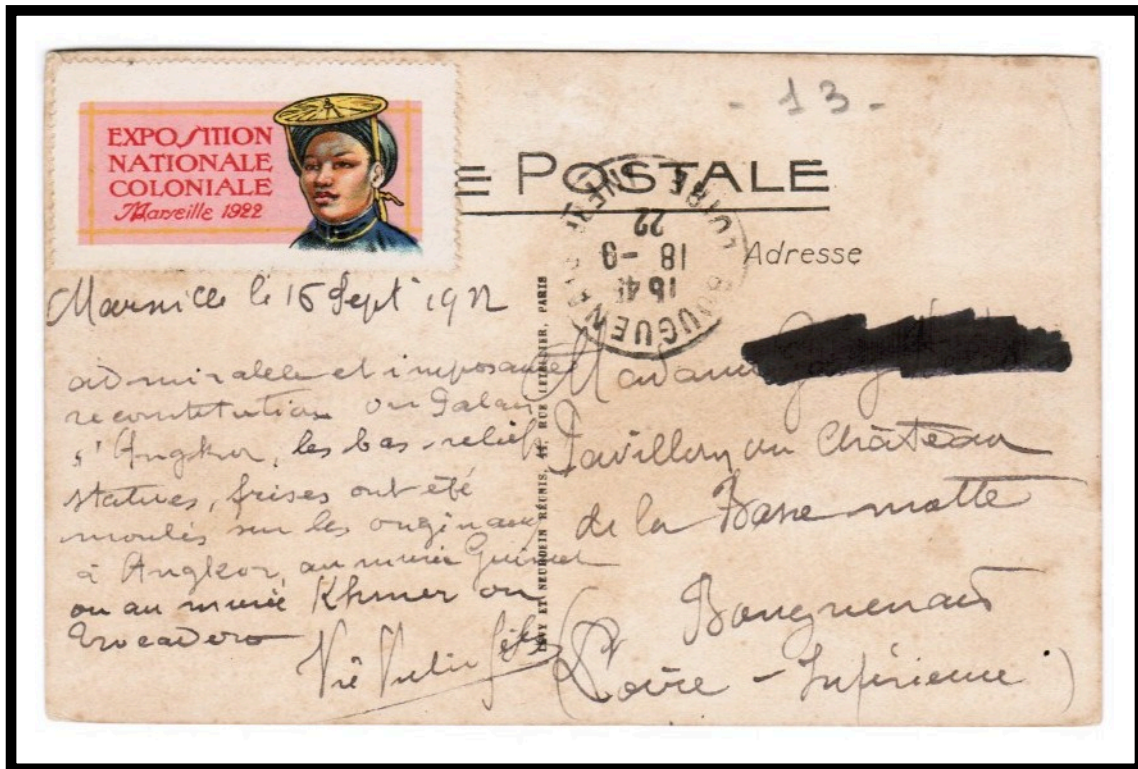 - 13 -
EXPOSITION
NATIONALE
COLONIALE
Marseille 1922
E POSTALE
Adresse
16 45
18 -9
22
LOIRE
BOUGUEN
Marseille le 16 Sept 1922
admirable et imposante
reconstitution du Palais
d'Angkor, les bas-reliefs
statues, frises ont été
moulés sur les originaux
à Angkor, au musée Guimet
ou au musée Khmer du
Trocadero
LEVY ET NEURDEIN RÉUNIS, 44, RUE LETELLIER, PARIS
Madame
Pavillon du Château
de la Basse motte
Bouguenais
(Loire - Inférieure)